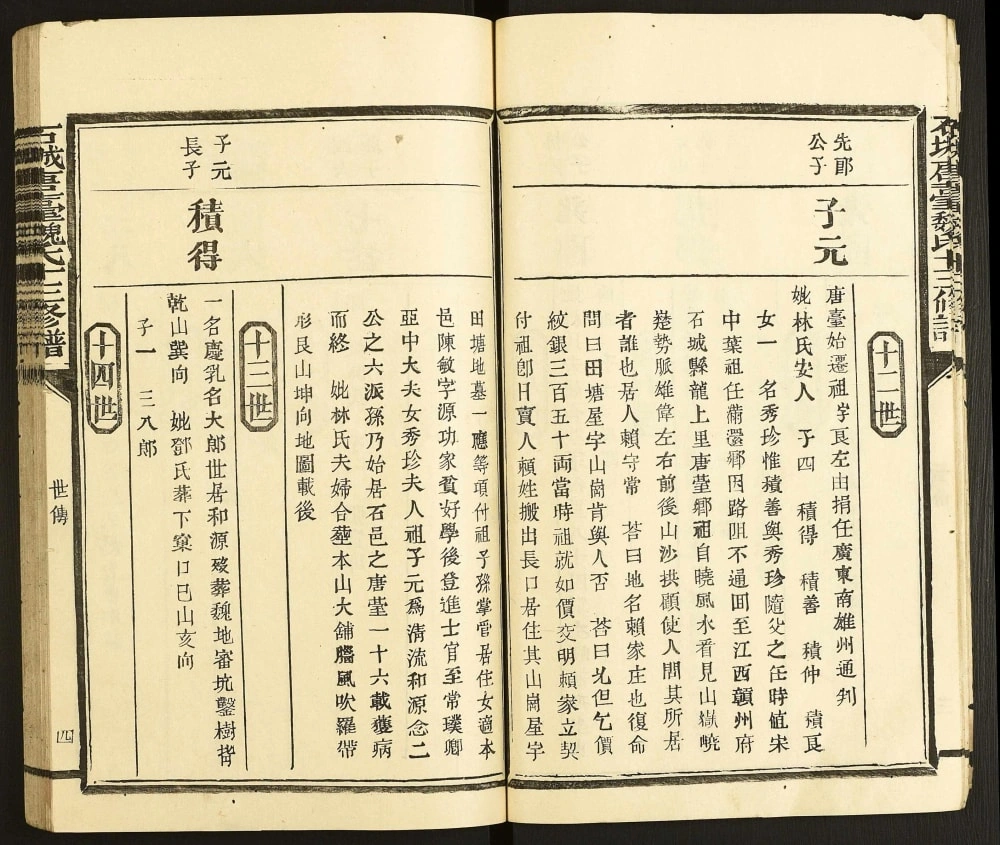 石城唐臺魏氏十三修譜
十二世
先郎
公子
子元
唐臺始遷祖字艮左由捐任廣東南雄州通判
妣林氏安人　子四　積得　積善　積仲　積艮
女一　名秀珍惟積善與秀珍隨父之任時值宋
中葉祖任滿還鄉因路阻不通回至江西贛州府
石城縣龍上里唐臺鄉祖自曉風水看見山嶽嶢
楚勢脈雄偉左右前後山沙拱顧使人問其所居
者誰也居人賴守常　荅曰地名賴家庄也復命
問曰田塘屋宇山崗肯與人否　荅曰允但乞價
紋銀三百五十両當時祖就如價交明賴家立契
付祖卽日賣人賴姓搬出長口居住其山崗屋宇
田塘地墓一應等項付祖子孫掌管居住女適本
邑陳敏字源功家貧好學後登進士官至常璞卿
亞中大夫女秀珍夫人祖子元爲清流和源念二
公之六派孫乃始居石邑之唐臺一十六載獲病
而終　妣林氏夫婦合塟本山大舖腦風吹羅帶
形艮山坤向地圖載後
十三世
子元
長子
積得
一名慶乳名大郎世居和源歿葬魏地審坑鑿樹
乾山巽向　妣鄧氏葬下窠口巳山亥向
子一　三八郎
十四世
石城唐臺魏氏十三修譜
世傳
四